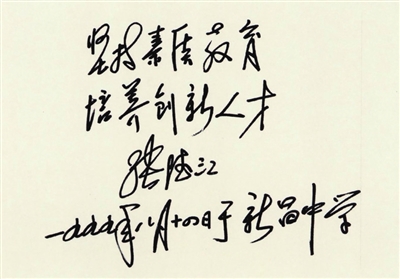 坚持素质教育
培养创新人才
张德江
一九九九年八月十四日于新昌中学